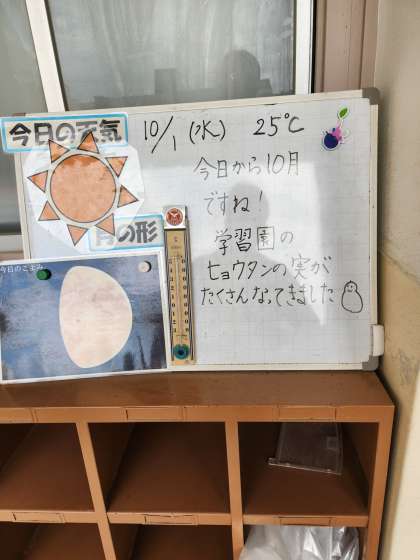 今日の天気
10/1 (水) 25℃
今日から10月
ですね!
学習園の
ヒョウタンの実が
たくさんなってきました
月の形